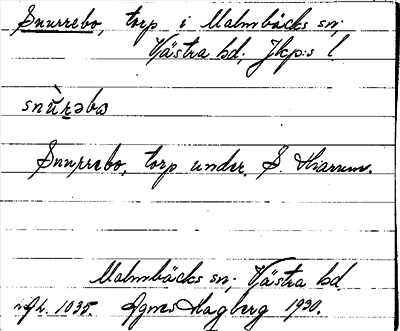 Snurrebo, torp i Malmbäcks sn;
Västra hd, Jkp:s l.
snùrəbo
Snurrebo, torp under. S.
Malmbäcks sn; Västra hd.
1035. Agnes Hagberg 1930.